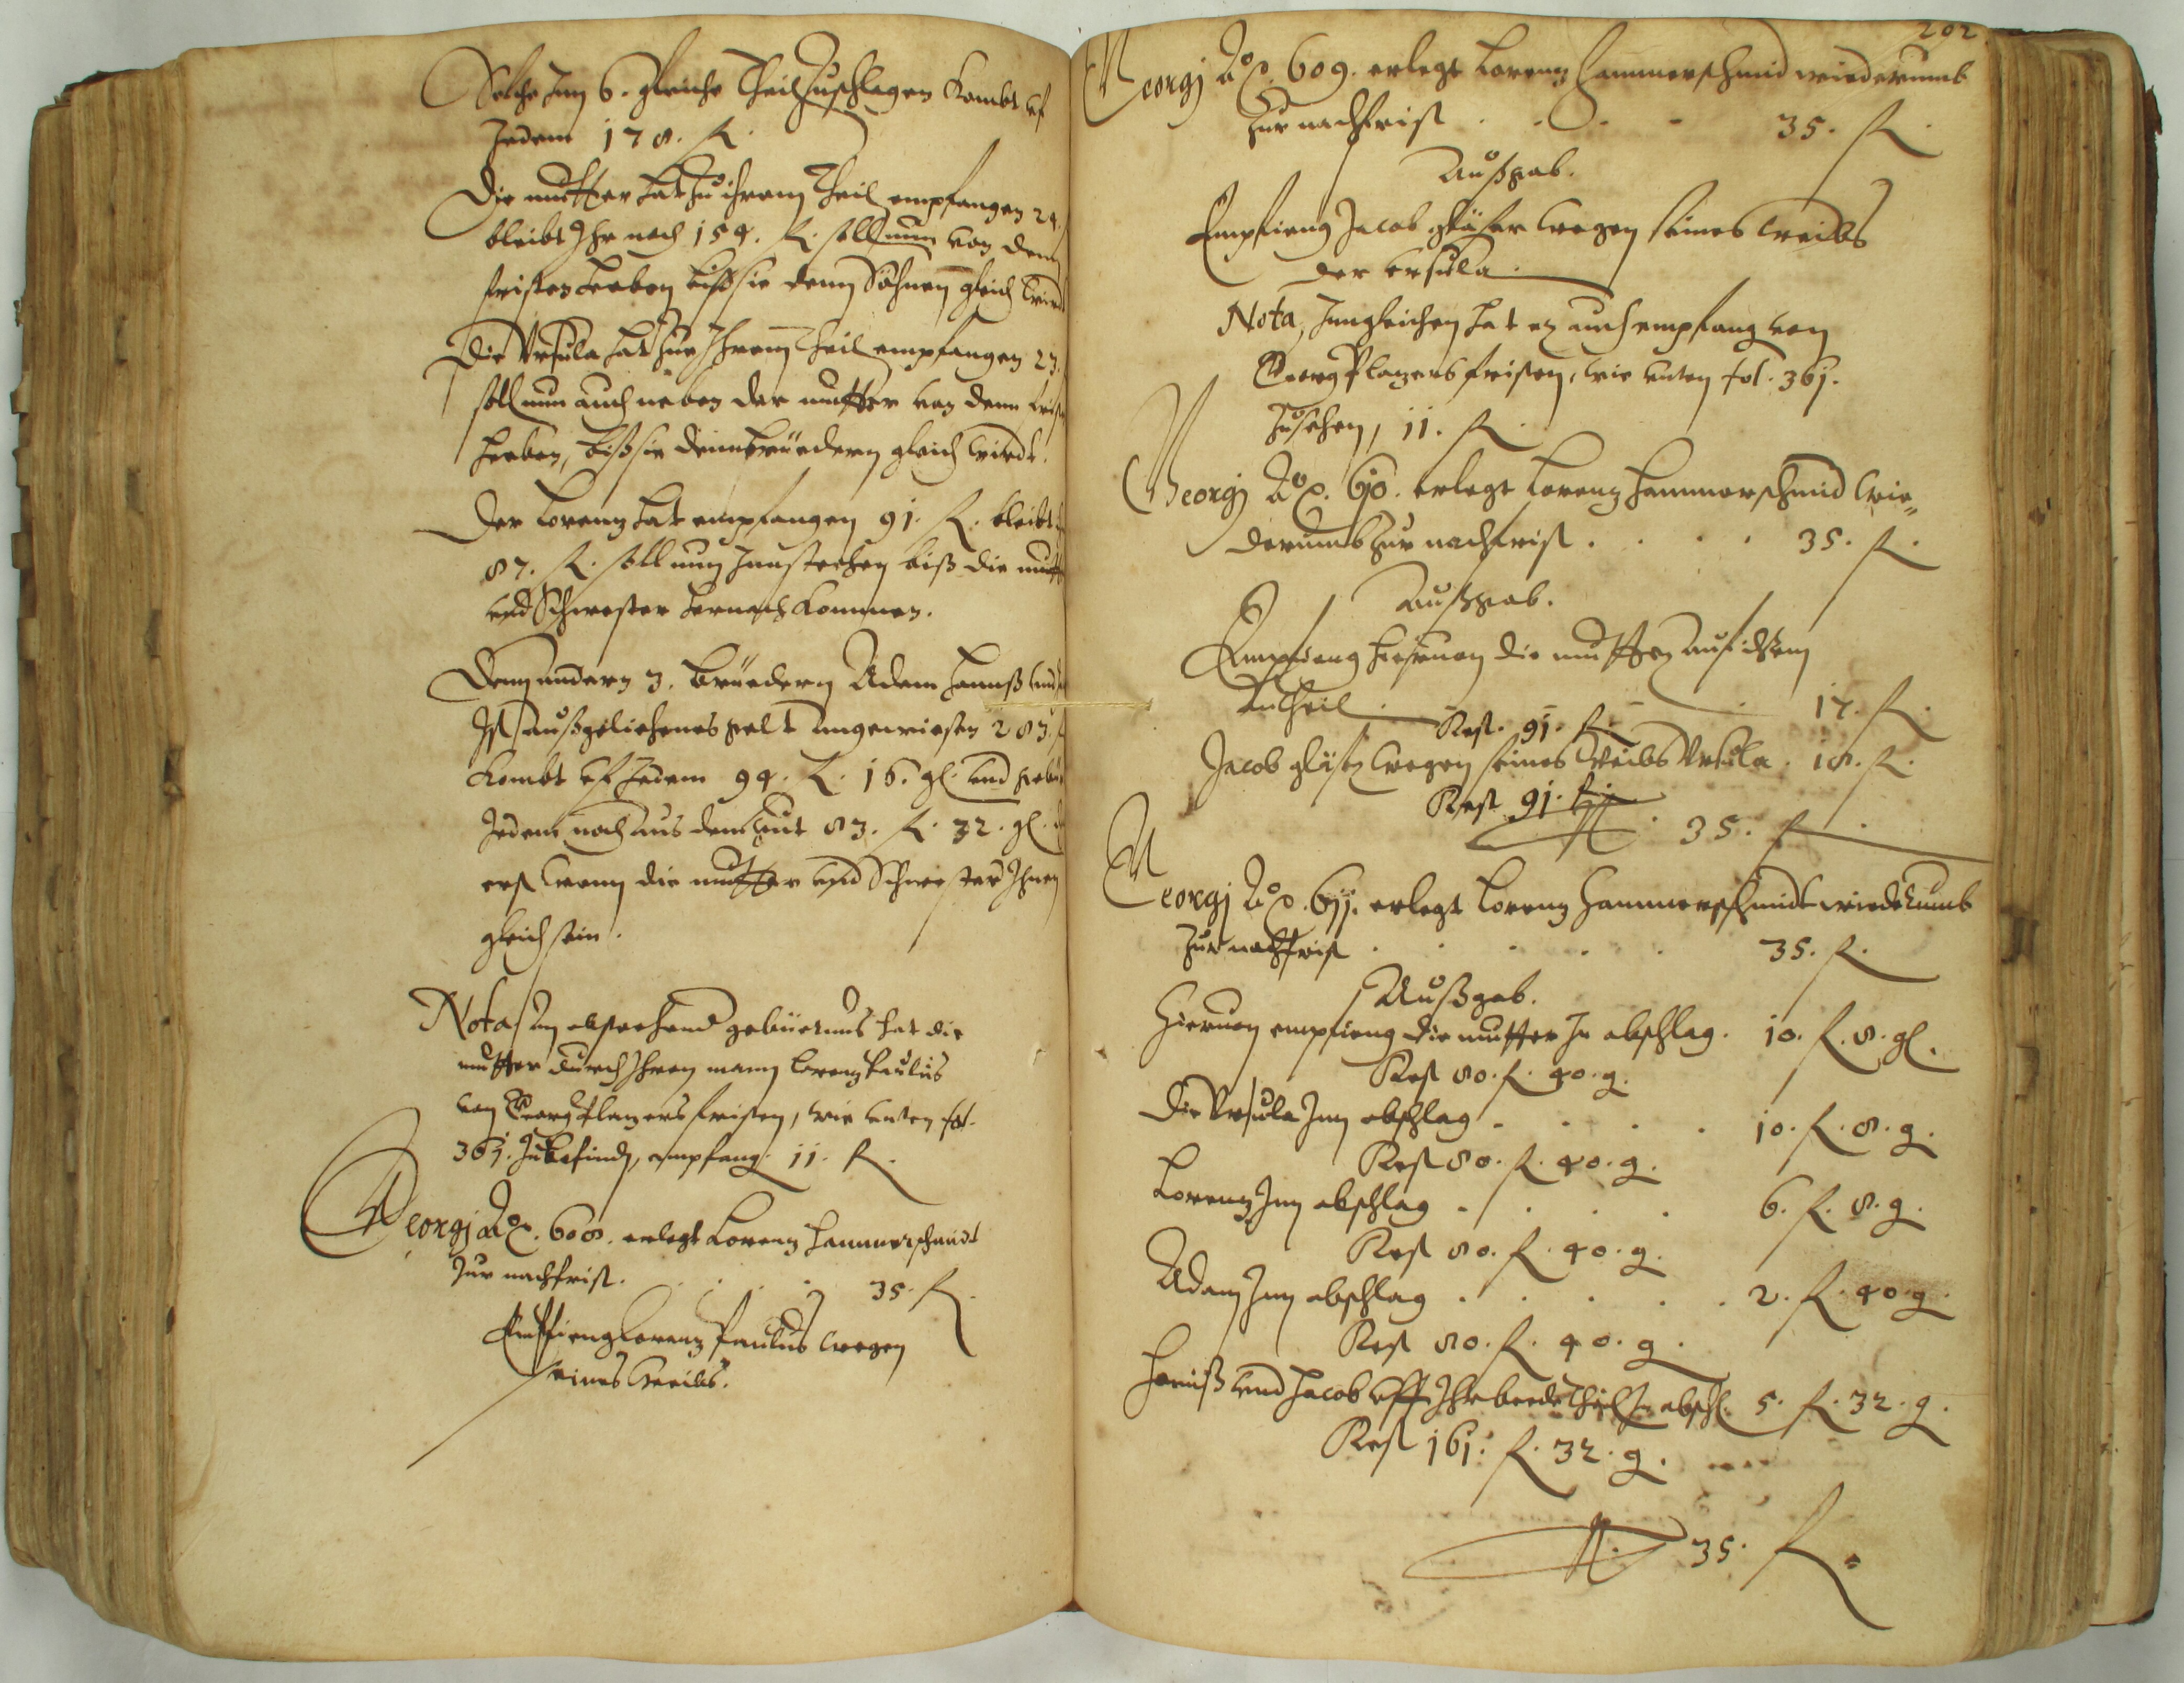 Solche Inn 6. gleiche Theil zuschlagen kombt vf
Jedem 178. fl.
Die mutter hat zu ihrem Theil empfangen 24.
bleibt Ihr noch 154. fl. soll nun von den
fristen heben biß sie denn Söhnen gleich wirdt
Die Vrsula hat zue Ihrem Theil empfangen 23.
soll nun auch neben der mutter von denn fristen
heeben, biß sie denn brüedern gleich wirdt.
Der Lorenz hat empfangen 91. fl. bleibt
87. fl. soll nun Innstehen biß die mutter
vnd Schwester hernach kommen.
Denn andern 3. brüedern Adam Hannß vnd
Ist außgeliehenes gelt angewiesen 283. fl
kombt vf Jedem 94. fl. 16. gl. vnd gebür
Jedem noch aus dem Gut 83. fl. 32. gl.
erst wenn die mutter vnd Schwester Ihnen
gleich sein.
Nota An obstehend gebüernus hat die
mutter durch Ihren mann Lorenz Paulus
von Georg Planzers fristen, wie vnten fol.
361. zubefinden, empfang. 11. fl.
Georgj Aõ. 608. erlegt Lorenz Hammerschmidt
zur nachfrist. . . . . 35. fl.
Empfieng Lorenz Paulus wegen
seines Weibs.
202
Georgj Aõ. 609. erlegt Lorenz Hammerschmid wiederumb
zur nachfrist . . . . 35. fl.
Außgab.
Empfieng Jacob gläser wegen seines Weibs
der Vrsula.
Nota, Inngleichen hat er auch empfang von
Georg Planzers fristen, wie vnten fol. 361.
zusehen, 11. fl.
Georgj Aõ. 610. erlegt Lorenz Hammerschmid wie„
derumb zur nachfrist . . . . 35. fl.
Außgab.
Empfieng hieruon die mutter auf ihrem
Antheil . 17. fl.
Rest. 91. fl.
Jacob gläser wegen seines Weibs Vrsula . 18. fl.
Rest 91. fl.
35. fl.
Georgj Aõ. 611. erlegt Lorenz Hammerschmidt wiederumb
zur nachfrist . . . . . 35. fl.
Außgab.
Hieruon empfieng die mutter In abschlag. 10. fl. 8. gl.
Rest 80. fl. 40. g.
Die Vrsula Inn abschlag . . . . 10. fl. 8. g.
Rest 80. fl. 40. g.
Lorenz Inn abschlag . . . . 6. fl. 8. g.
Rest 80. fl. 40. g.
Adam Inn abschlag . . . . . 2. fl. 40. g.
Rest 80. fl. 40. g.
Hannß vnd Jacob vff Ihr beede Theil In abschl. 5. fl. 32. g.
Rest 161. fl. 32. g.
35. fl.